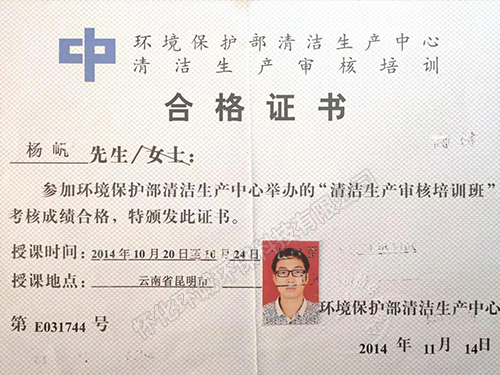 环境保护部清洁生产中心
清洁生产审核培训
合格证书
杨帆 先生/女士：
参加环境保护部清洁生产中心举办的“清洁生产审核培训班”
考核成绩合格，特颁发此证书。
授课时间：2014年10月20日至10月24日
授课地点：云南省昆明市
环境保护部清洁生产中心
第 E031744 号
2014 年 11月 14日